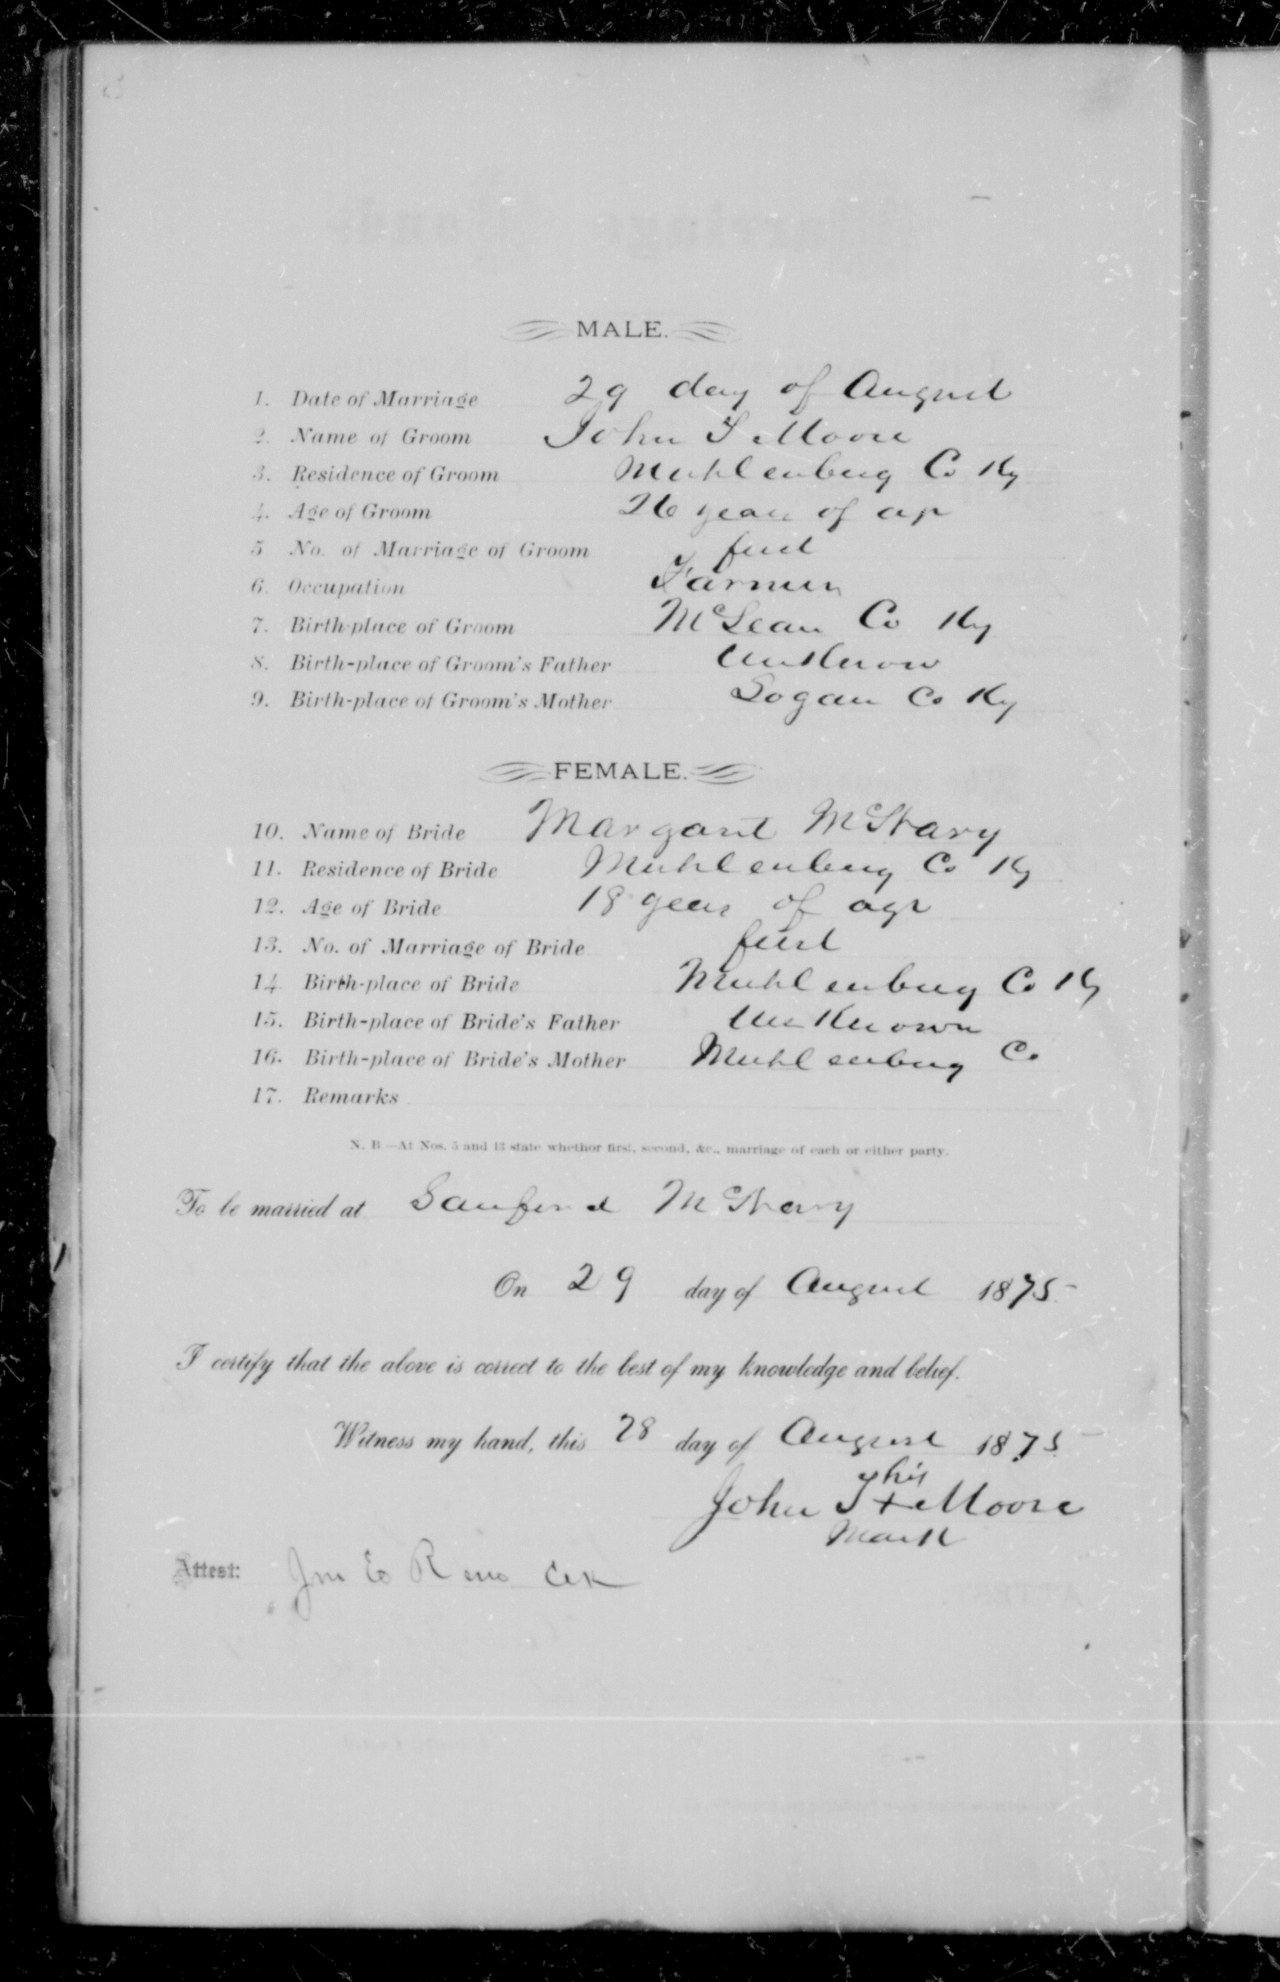 MALE.
1. Date of Marriage 29 day of August
2. Name of Groom John T Moore
3. Residence of Groom Muhlenburg Co Ky
4. Age of Groom 26 years of age
5 No. of Marriage of Groom first
6. Occupation Farmer
7. Birth-place of Groom McLean Co Ky
8. Birth-place of Groom's Father Unknow
9. Birth-place of Groom's Mother Logan Co Ky
FEMALE.
10. Name of Bride Margaret McNary
11. Residence of Bride Muhlenburg Co Ky
12. Age of Bride 18 years of age
13. No. of Marriage of Bride first
14 Birth-place of Bride Muhlenburg Co Ky
15. Birth-place of Bride's Father Unknown
16. Birth-place of Bride's Mother Muhlenburg Co
17. Remarks
N. B.—At Nos. 5 and 13 state whethor first, second, &c., marriage of each or either party.
To be married at Sanford McNary
On 29 day of August 1875
I certify that the above is correct to the best of my knowledge and belief.
Witness my hand, this 28 day of August 1875
his
John T x Moore
Mark
Attest: Jno E Reno Clk